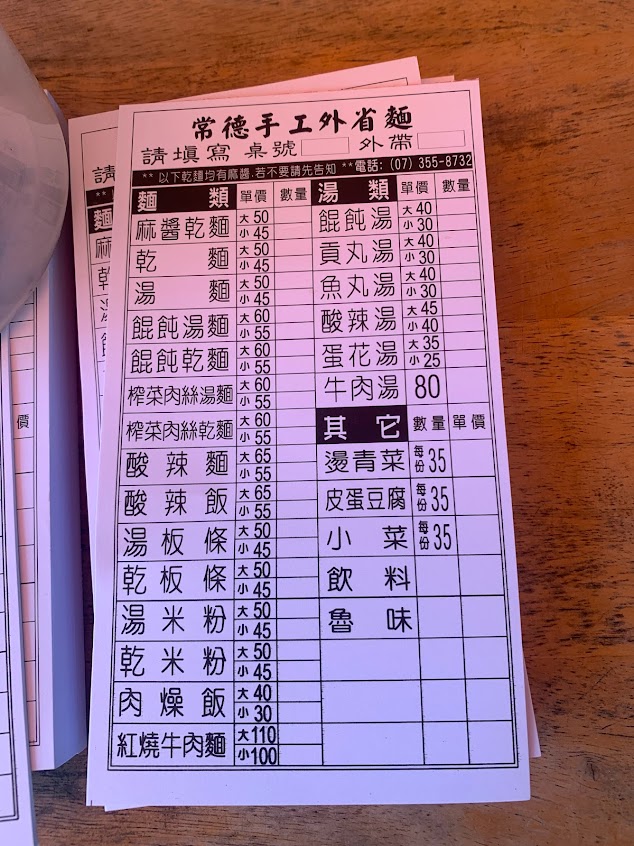 常德手工外省麵
請填寫 桌號 外帶
** 以下乾麵均有麻醬.若不要請先告知 ** 電話: (07) 355-8732
麵 類 單價 數量
麻醬乾麵 大 50 小 45
乾 麵 大 50 小 45
湯 麵 大 50 小 45
餛飩湯麵 大 60 小 55
餛飩乾麵 大 60 小 55
榨菜肉絲湯麵 大 60 小 55
榨菜肉絲乾麵 大 60 小 55
酸 辣 麵 大 65 小 55
酸 辣 飯 大 65 小 55
湯 板 條 大 50 小 45
乾 板 條 大 50 小 45
湯 米 粉 大 50 小 45
乾 米 粉 大 50 小 45
肉 燥 飯 大 40 小 30
紅燒牛肉麵 大 110 小 100
湯 類 單價 數量
餛飩湯 大 40 小 30
貢丸湯 大 40 小 30
魚丸湯 大 40 小 30
酸辣湯 大 45 小 40
蛋花湯 大 35 小 25
牛肉湯 80
其 它 數量 單價
燙青菜 每份 35
皮蛋豆腐 每份 35
小 菜 每份 35
飲 料
魯 味
請
**
麵
麻
乾
湯
價